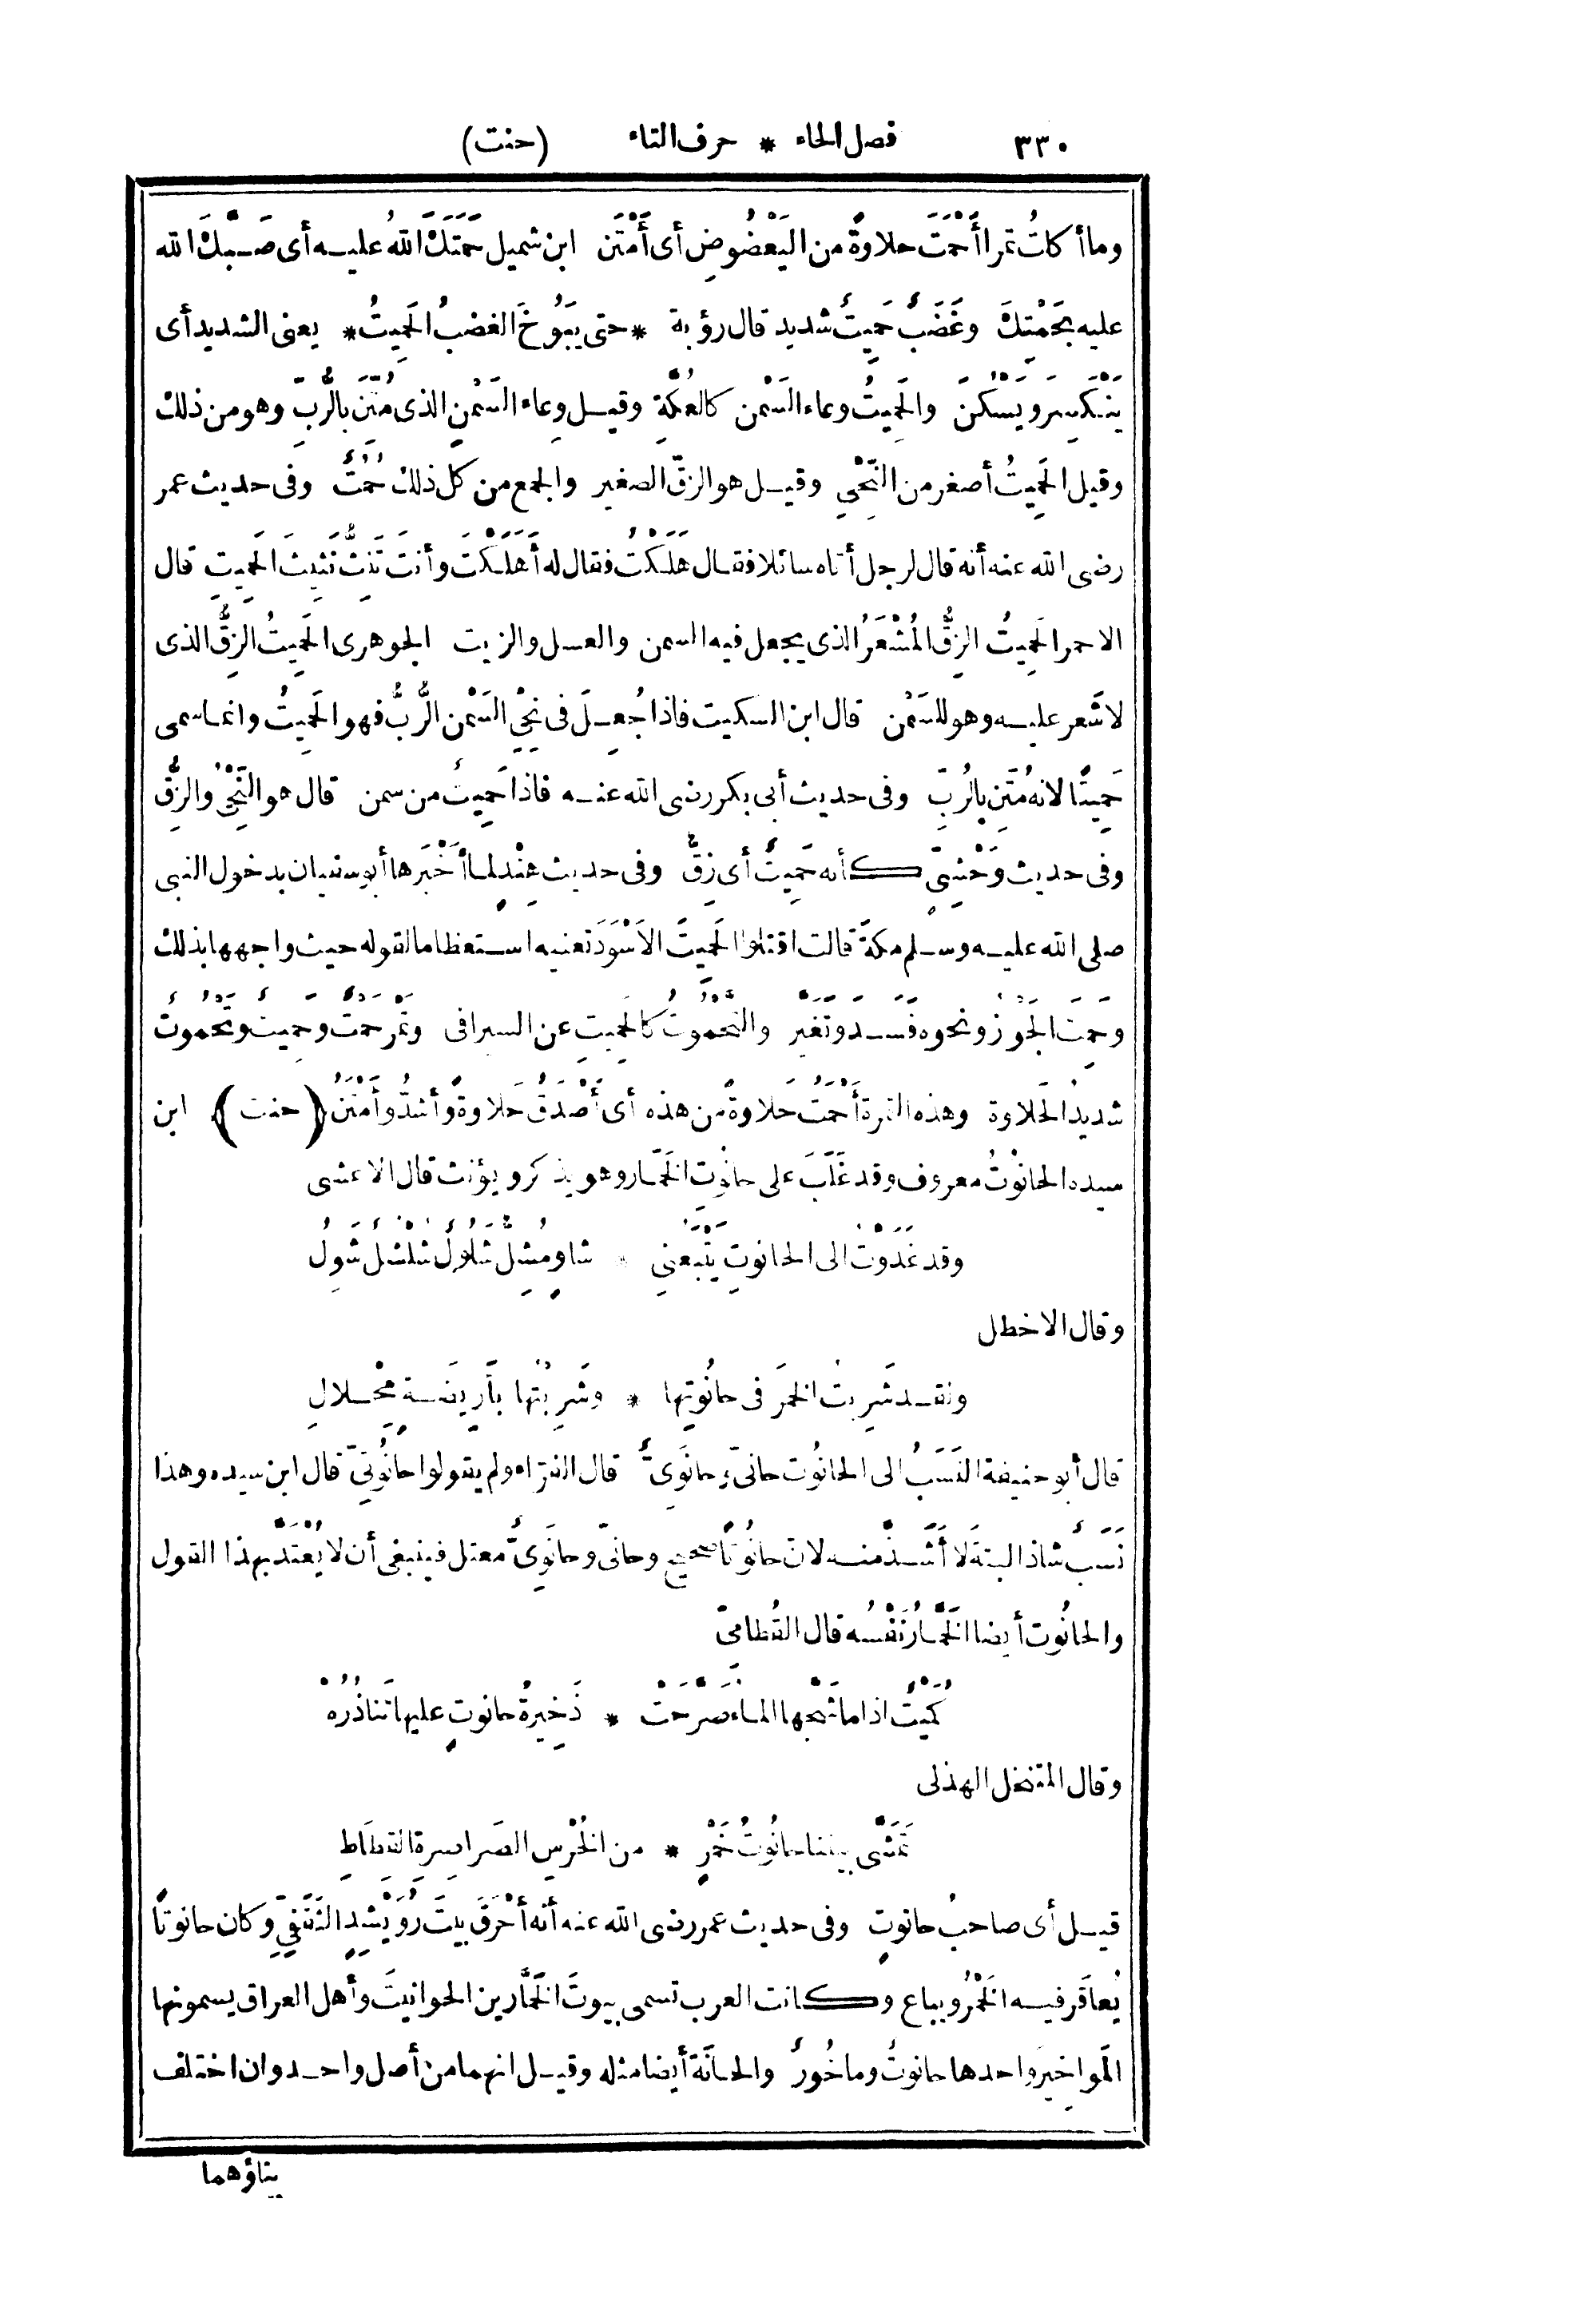 ٣٣٠ فصل الحاء * حرف التاء (حنت)
وما أكلتُ تمرا أَحْمَتَ حلاوةً من اليَعْضُوضِ أى أَمْتَن ابن شميل حَمَتَكَ اللهُ عليه أى صَبَّكَ الله
عليه بحَمْتِكَ وغَضَبٌ حَمِيتٌ شديد قال رؤبة * حتى يَبُوخَ الغضبُ الحَمِيتُ * يعنى الشديد أى
يَنْكَسِرَ ويَسْكُنَ والحَمِيتُ وعاء السَمْن كالعُكَّةِ وقيل وِعاء السَمْنِ الذى مُتِّنَ بالرُّبِّ وهو من ذلك
وقيل الحَمِيتُ أصغر من النِّحْيِ وقيل هو الزقّ الصغير والجمع من كل ذلك حُمُتٌ وفى حديث عمر
رضى الله عنه أنه قال لرجل أتاه سائلا فقال هَلَكْتُ فقال له أَهَلَكْتَ وأنتَ تَنِثُّ نَثِيثَ الحَمِيتِ قال
الاحمر الحَمِيتُ الزِقُّ المُشْعَرُ الذى يجعل فيه السمن والعسل والزيت الجوهرى الحَمِيتُ الزِقُّ الذى
لا شَعر عليه وهو للسَمْن قال ابن السكيت فاذا جُعِلَ فى نِحْيِ السَمْن الرُّبُّ فهو الحَمِيتُ وانما سمى
حَمِيتًا لانه مُتِّن بالرُبِّ وفى حديث أبى بكر رضى الله عنه فاذا حَمِيتٌ من سمن قال هو النِّحْىُ والزِقُّ
وفى حديث وَحْشِىٍّ كأنه حَمِيتٌ أى زِقٌّ وفى حديث هِنْدٍ لما أَخْبَرَها أبو سفيان بدخول النبى
صلى الله عليه وسلم مكةَ قالت اقتلوا الحَمِيتَ الأَسْوَدَ تعنيه استعظاما لقوله حيث واجهها بذلك
وحَمِتَ الجَوْزُ ونحوه فَسَدَ وتَغَيَّرَ والتَّحْمُوتُ كالحَمِيتِ عن السيرافى وتَمْرٌ حَمْتٌ وحَمِيتٌ وتَحْمُوتٌ
شديدُ الحَلاوة وهذه التمرة أَحْمَتُ حَلاوةً من هذه أى أَصْدَقُ حَلاوةً وأشدُّ وأَمْتَنُ (حنت) ابن
سيده الحانُوتُ معروف وقد غَلَبَ على حانُوتِ الخَمَّار وهو يذكر ويؤنث قال الاعشى
وقد غَدَوْتُ الى الحانوتِ يَتْبَعُنِى * شاوٍ مُشِلٌّ شَلُولٌ شُلْشُلٌ شَوِلُ
وقال الاخطل
ولقد شَرِبْتُ الخمرَ فى حانُوتِها * وشَرِبْتُها بأَرِيضَةٍ مِحْلالِ
قال أبو حنيفة النَسَبُ الى الحانُوت حانىٌّ وحانَوِىٌّ قال الفرّاء ولم يقولوا حانُوتِىٌّ قال ابن سيده وهذا
نَسَبٌ شاذ البتةَ لا أَشَذَّ منه لان حانُوتًا صحيح وحانىٌّ وحانَوِىٌّ معتل فينبغى أن لا يُعْتَدَّ بهذا القول
والحانُوت أيضا الخَمَّارُ نَفْسُه قال القُطامىّ
كُمَيْتٌ اذا ما شَجَّها الماءُ صَرَّحَتْ * ذَخِيرةُ حانوتٍ عليها تَناذُرُهْ
وقال المتنخل الهذلى
تَمَشَّى بيننا حانُوتُ خَمْرٍ * من الخُرْسِ الصَراصِرةِ القِطاطِ
قيل أى صاحبُ حانوتٍ وفى حديث عمر رضى الله عنه أنه أَحْرَقَ بيتَ رُوَيْشِدٍ الثَقَفِىِّ وكان حانوتًا
يُعاقَر فيه الخَمْرُ ويباع وكانت العرب تسمى بيوتَ الخَمَّارين الحوانيتَ وأهل العراق يسمونها
المَواخِيرَ واحدها حانوتٌ وماخُورٌ والحانَةُ أيضا مثله وقيل انهما من أصل واحد وان اختلف
بناؤهما